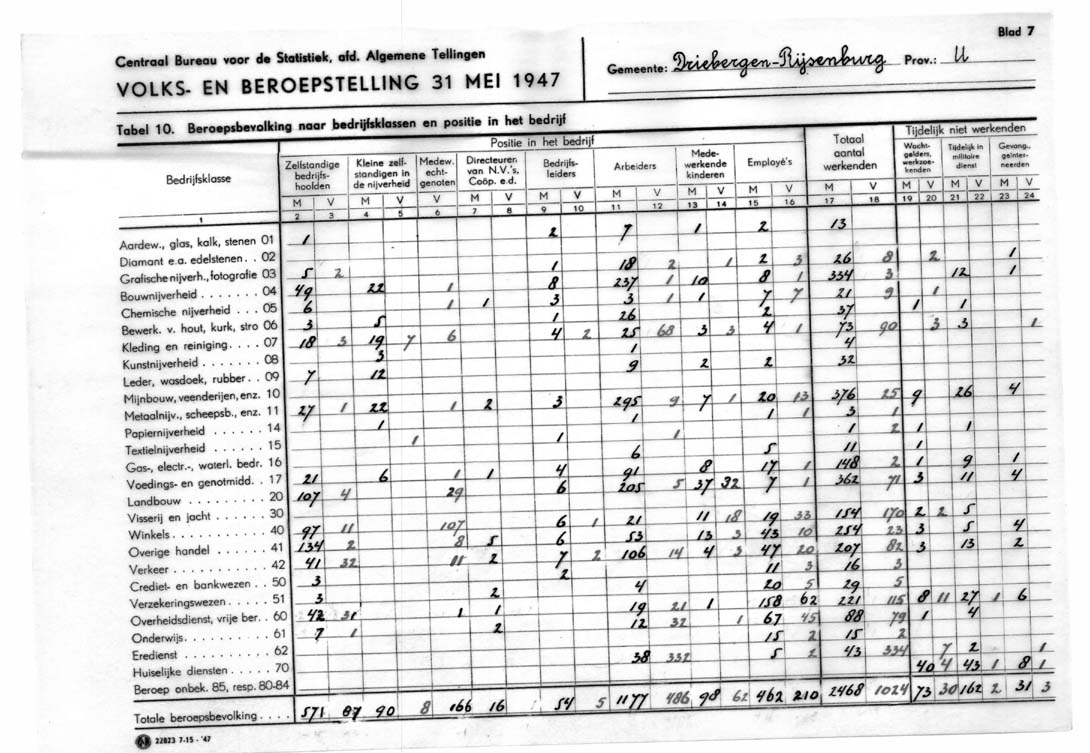 Blad 7
Centraal Bureau voor de Statistiek, afd. Algemene Tellingen
VOLKS- EN BEROEPSTELLING 31 MEI 1947
Gemeente: Driebergen-Rijsenburg Prov.: U
Tabel 10. Beroepsbevolking naar bedrijfsklassen en positie in het bedrijf
Bedrijfsklasse
Positie in het bedrijf
Totaal aantal werkenden
Tijdelijk niet werkenden
Zelfstandige bedrijfs-hoofden
Kleine zelf-standigen in de nijverheid
Medew. echt-genoten
Directeuren van N.V.'s, Coöp. e.d.
Bedrijfs-leiders
Arbeiders
Mede-werkende kinderen
Employé's
Wacht-gelders, werkzoe-kenden
Tijdelijk in militaire dienst
Gevang., geïnter-neerden
M V M V V M V M V M V M V M V M V M V M V M V
1 2 3 4 5 6 7 8 9 10 11 12 13 14 15 16 17 18 19 20 21 22 23 24
Aardew., glas, kalk, stenen 01 1 2 7 1 2 13
Diamant e.a. edelstenen . . 02
Grafische nijverh., fotografie 03 5 2 1 18 2 1 2 3 26 8 2 1
Bouwnijverheid . . . . . . . 04 49 22 1 8 237 1 10 8 1 334 3 12 1
Chemische nijverheid . . . 05 6 1 1 3 3 1 1 7 7 21 9 1
Bewerk. v. hout, kurk, stro 06 3 5 1 26 2 37 1 1
Kleding en reiniging . . . . 07 18 3 19 7 6 4 2 25 68 3 3 4 1 73 90 3 3 1
Kunstnijverheid . . . . . . . 08 3 1 4
Leder, wasdoek, rubber . . 09 7 12 9 2 2 32
Mijnbouw, veenderijen, enz. 10
Metaalnijv., scheepsb., enz. 11 27 1 22 1 2 3 295 9 7 1 20 13 376 25 9 26 4
Papiernijverheid . . . . . . 14 1 1 1 1 3 1
Textielnijverheid . . . . . . 15 1 1 1 1 2 1 1
Gas-, electr.-, waterl. bedr. 16 6 5 11 1
Voedings- en genotmidd. . 17 21 6 1 1 4 91 8 17 1 148 2 1 9 1
Landbouw . . . . . . . . . 20 107 4 29 6 205 5 37 32 7 1 362 71 3 11 4
Visserij en jacht . . . . . . 30
Winkels . . . . . . . . . . 40 97 11 107 6 1 21 11 18 19 33 154 170 2 2 5
Overige handel . . . . . . 41 134 2 8 5 6 53 13 3 43 10 254 23 3 5 4
Verkeer . . . . . . . . . . 42 41 32 11 2 7 2 106 14 4 3 47 20 207 82 3 13 2
Crediet- en bankwezen . . 50 3 2 11 3 16 3
Verzekeringswezen . . . . . 51 3 2 4 20 5 29 5
Overheidsdienst, vrije ber. . 60 42 31 1 1 19 21 1 158 62 221 115 8 11 27 1 6
Onderwijs . . . . . . . . . 61 7 1 2 12 32 1 67 45 88 79 1 4
Eredienst . . . . . . . . . 62 15 2 15 2
Huiselijke diensten . . . . . 70 38 332 5 2 43 334 7 2 1
Beroep onbek. 85, resp. 80-84 40 4 43 1 8 1
Totale beroepsbevolking . . . . 571 87 90 8 166 16 54 5 1177 486 98 62 462 210 2468 1024 73 30 162 2 31 3
22823 7-15 - '47